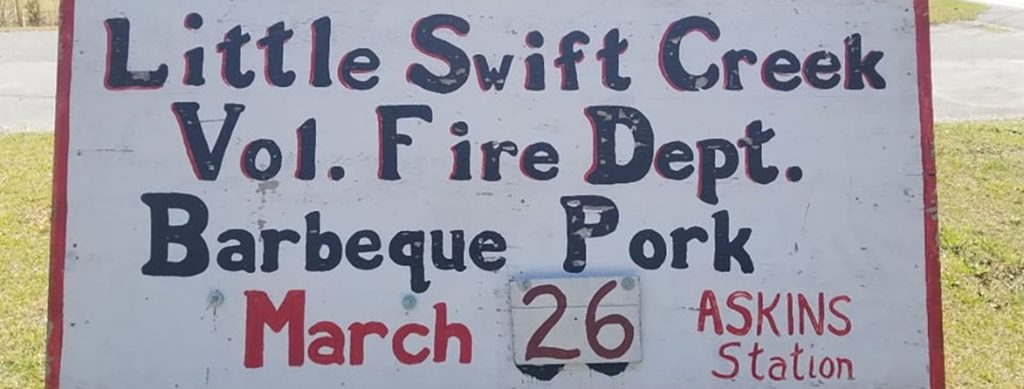 Little Swift Creek
Vol. Fire Dept.
Barbeque Pork
March 26
ASKINS
Station